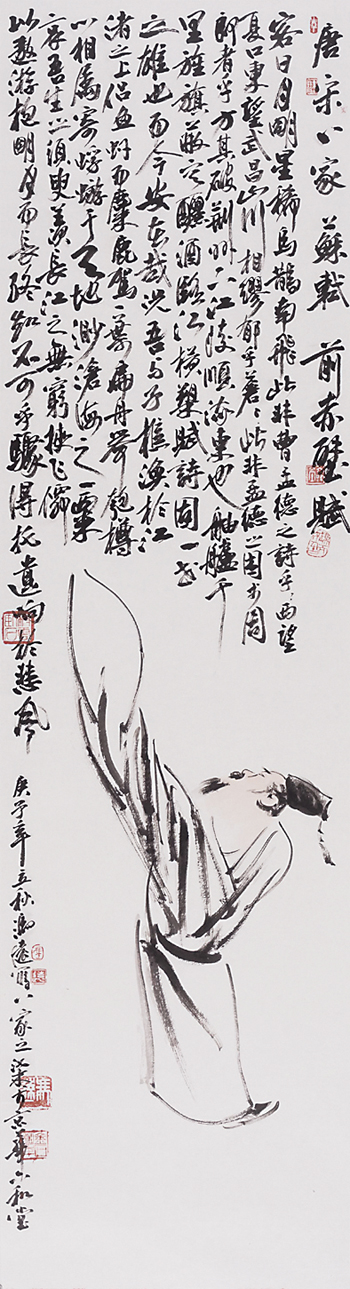 唐宋八家 蘇軾 前赤壁賦
客曰月明星稀烏鵲南飛此非曹孟德之詩乎西望
夏口東望武昌山川相繆郁乎蒼々此非孟德之困於周
郎者乎方其破荆州下江陵順流東也舳艫千
里旌旗蔽空釃酒臨江橫槊賦詩固一世
之雄也而今安在哉況吾与子樵漁於江
渚之上侣魚蝦而麋鹿駕一葉扁舟舉匏樽
以相屬寄蜉蝣于天地渺滄海之一粟
哀吾生之須臾羨長江之無窮挾飛仙
以遨游抱明月而長終知不可乎驟得托遺响於悲風
庚子年立秋馮遠寫八家之柒於京華六和堂